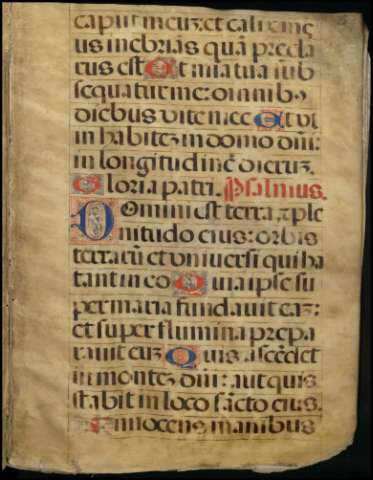 caput meuz: et calix me9
us inebrias quā precla
rus est Et mīa tua sub
sequatur me: omnib9
diebus vite mee Et vt
in habitez in domo dñi:
in longitudinē dieruz.
Gloria patri. Psalmus.
Domini est terra ⁊ ple
nitudo eius: orbis
terrarū et vniuersi qui ha
tant in eo Quia ipse su
per maria fundauit eaz:
et super flumina prepa
rauit euz Quis ascēdet
in montez dñi: aut quis
stabit in loco sācto eius.
Innocens manibus